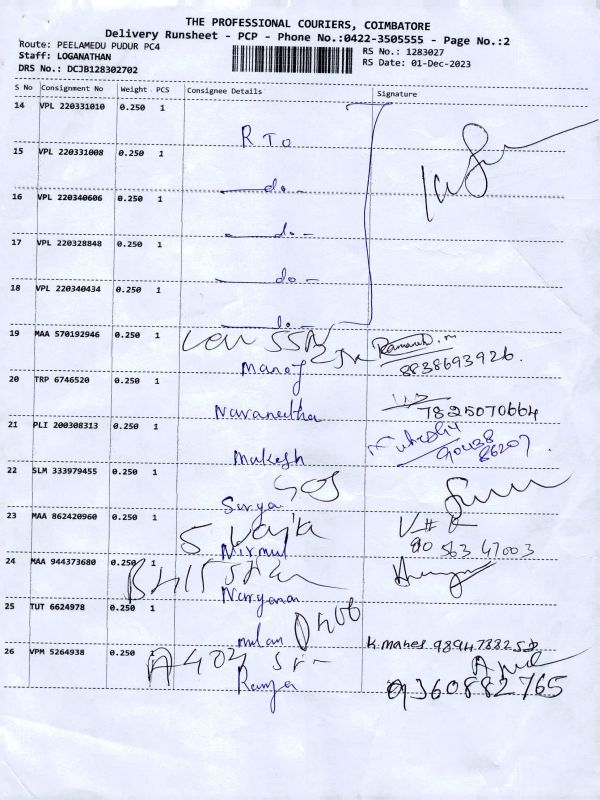 THE PROFESSIONAL COURIERS, COIMBATORE
Delivery Runsheet - PCP - Phone No.:0422-3505555 - Page No.:2
Route: PEELAMEDU PUDUR PC4
Staff: LOGANATHAN
DRS No.: DCJB128302702
RS No.: 1283027
RS Date: 01-Dec-2023
S No Consignment No Weight PCS Consignee Details Signature
14 VPL 220331010 0.250 1
RTO
15 VPL 220331008 0.250 1
do
16 VPL 220340606 0.250 1
do
17 VPL 220328848 0.250 1
do
18 VPL 220340434 0.250 1
do
19 MAA 570192946 0.250 1
Manoj 8838693926
20 TRP 6746520 0.250 1
Navaneetha 7825070664
21 PLI 200308313 0.250 1
Mukesh 90438
86207
22 SLM 333979455 0.250 1
Surya
23 MAA 862420960 0.250 1
Nirmul 90 563 47003
24 MAA 944373680 0.250 1
Naryanan
25 TUT 6624978 0.250 1
milan D406 K. mahes
26 VPM 5264938 0.250
A 402
Ramya 9360882765